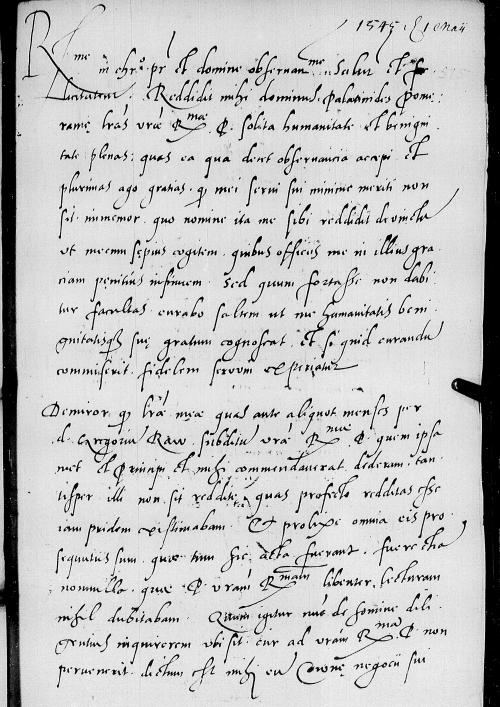 1545 1 Maij
R me in chro pr et domine observan me salut et fe
licitatem. Reddidit mihi dominus palatinides pome:
ranię lras vrae R mae P. solita humanitate et benigni
tate plenas: quas ea qua decet observancia accepi et
plurimas ago gratias. q mei servi sui minime meriti non
sit immemor. quo nomine ita me sibi reddidit devinctu
ut mecum sępius cogitem. quibus officiis me in illius gra
ciam penitius insinuem. Sed quum fortasse non dabi
tur facultas curabo saltem ut me humanitatis beni
gnitatisq suę gratum cognoscat. et si quid curandu
commiserit. fidelem servum experiatur
Demiror q lrae meae quas ante aliquot menses per
d. Gregoriu Raw. subditu vrae R mae P. quem ipsa
met et principi et mihi commendaverat. dederam. tan
tisper illi non sit reddite. quas profecto redditas esse
iam pridem existimabam. Et prolixe omnia eis pro
sequutus sum. quae tum hic acta fuerant. fuere etia
nonnulla. quae P. vram R mam libenter lecturam
nihil dubitabam. Quum igitur nuc de homine dili
gentius inquirerem ubi sit. cur ad vram R mam P. non
pervenerit. dictum est mihi eu negocii sui